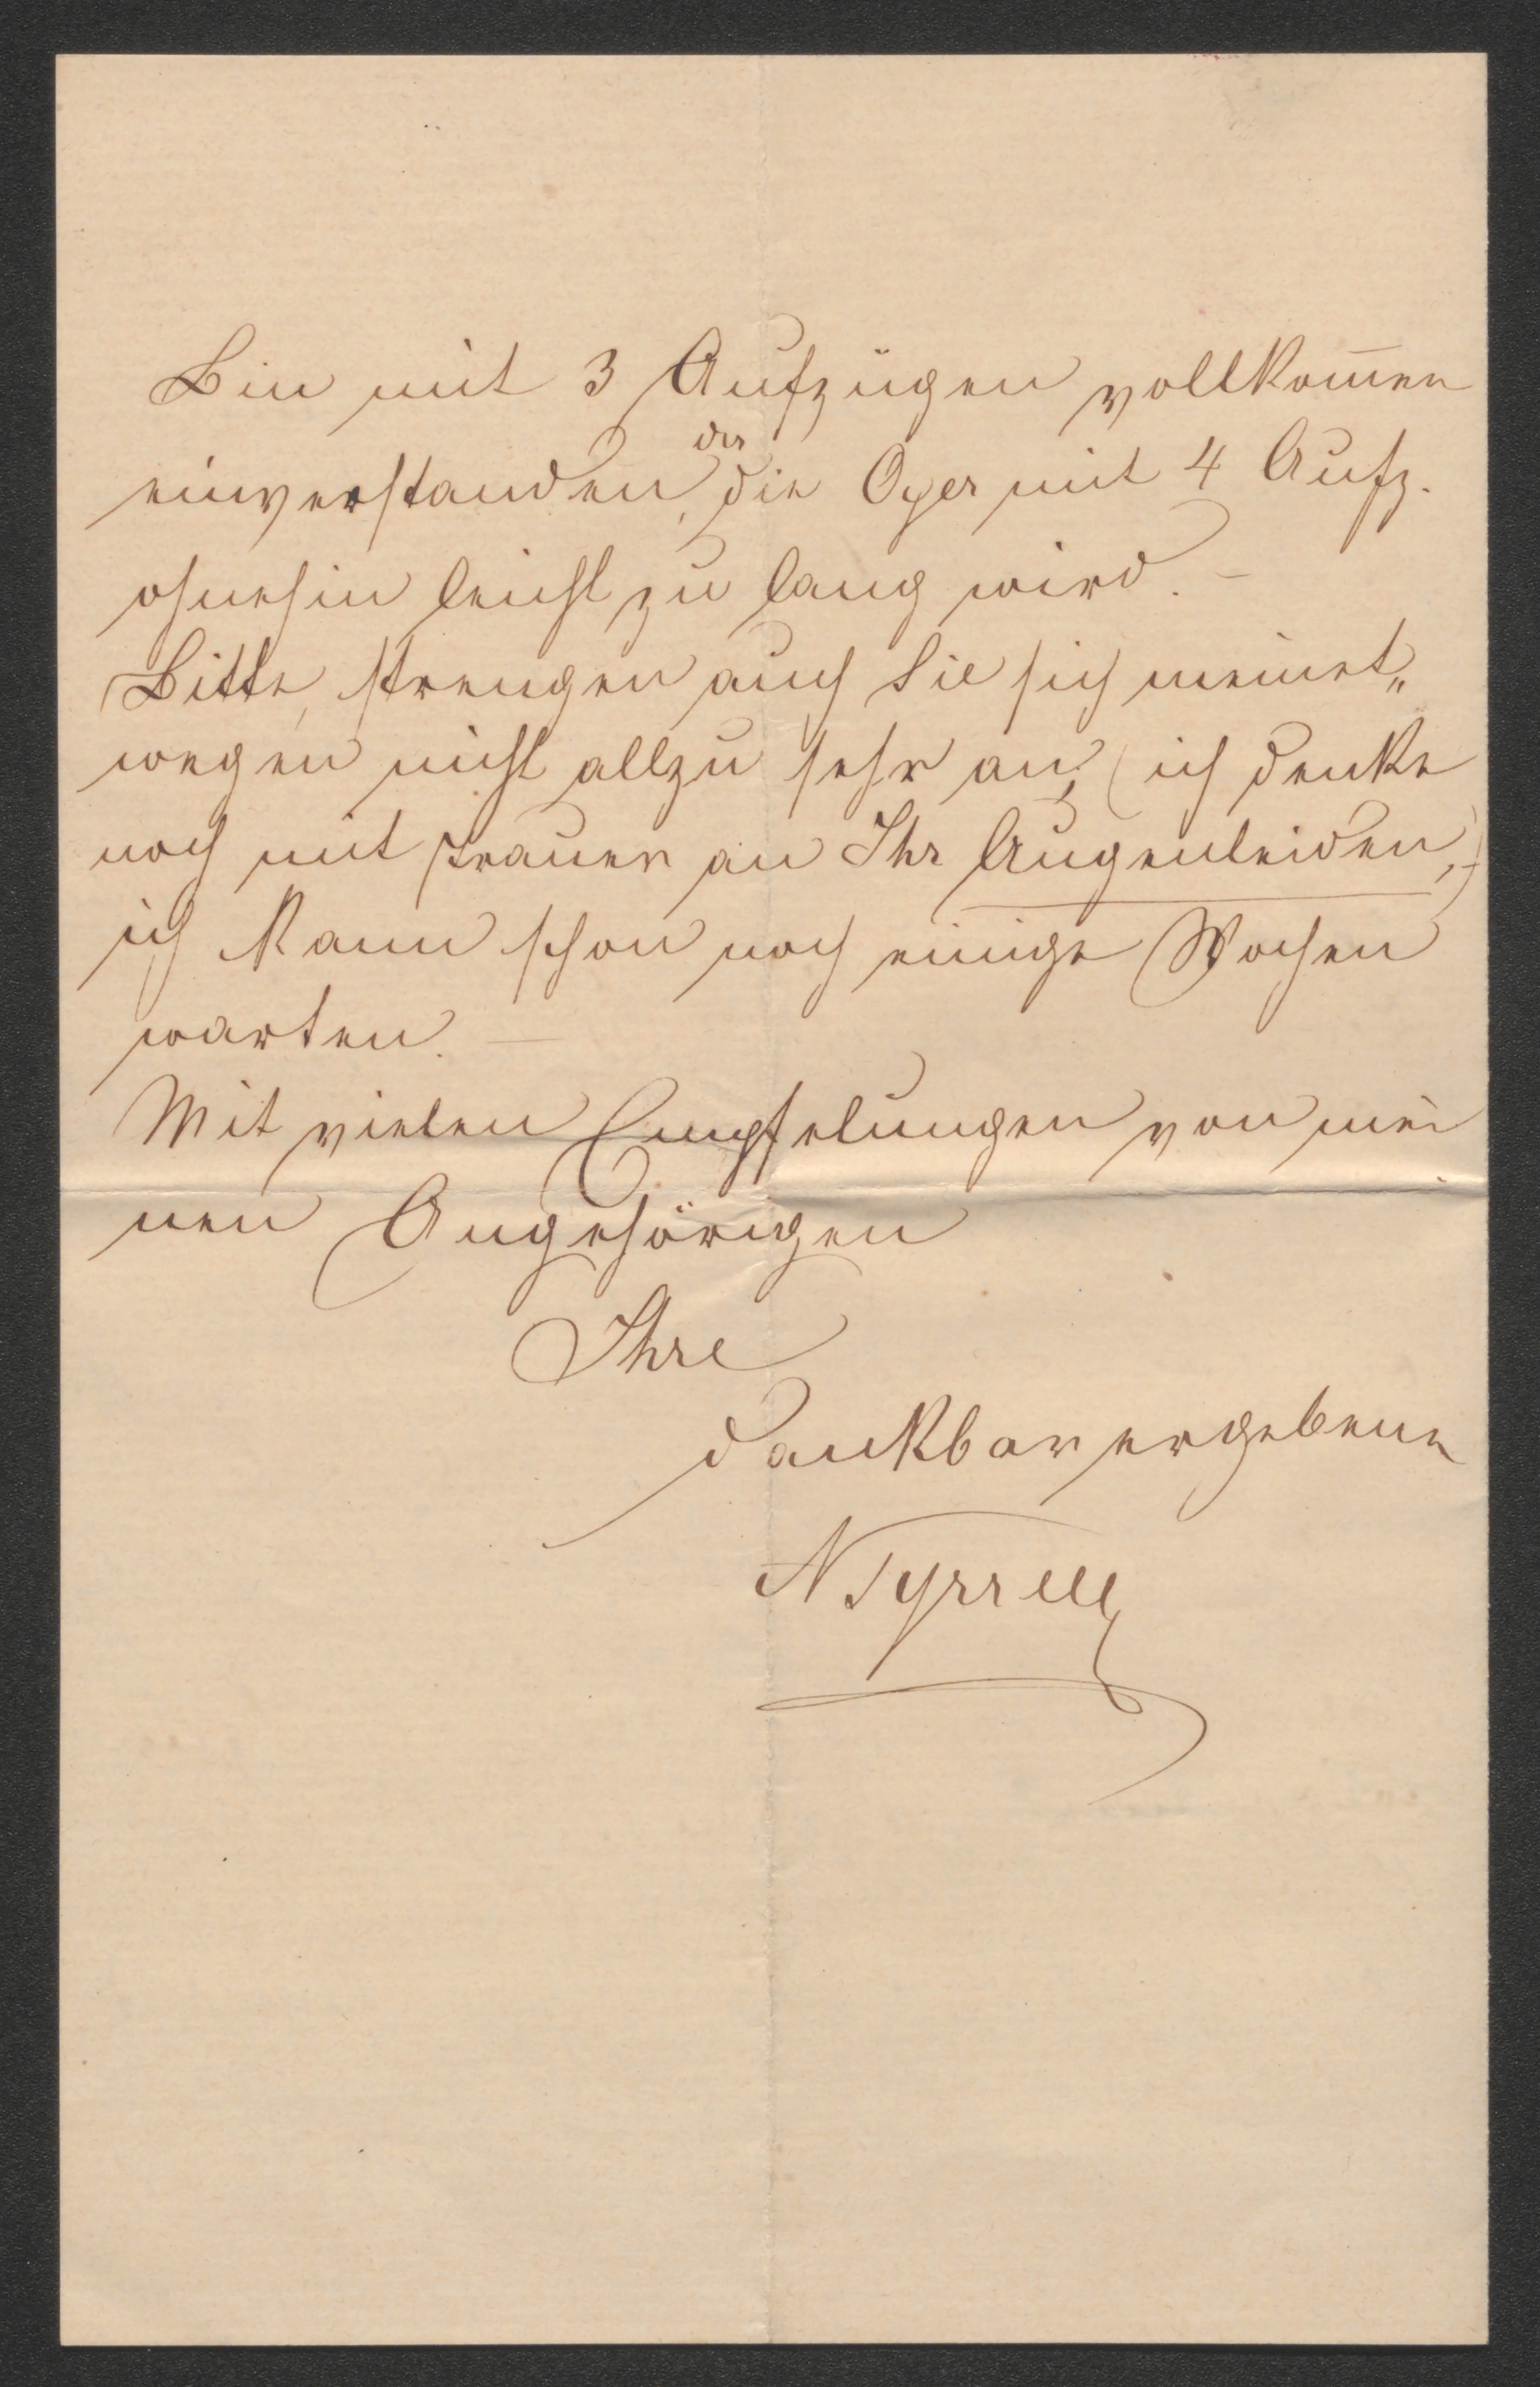 Bin mit 3 Aufzügen vollkom̅en
einverstanden, da die Oper mit 4 Aufz.
ohnehin leicht zu lang wird. –
Bitte, strengen auch Sie sich meinet„
wegen nicht allzu sehr an, (ich denke
noch mit Trauer an Ihr Augenleiden,)
ich kann schon noch einige Wochen
warten. –
Mit vielen Empfelungen von mei
nen Angehörigen
Ihre
dankbar ergebene
N Tyrrell